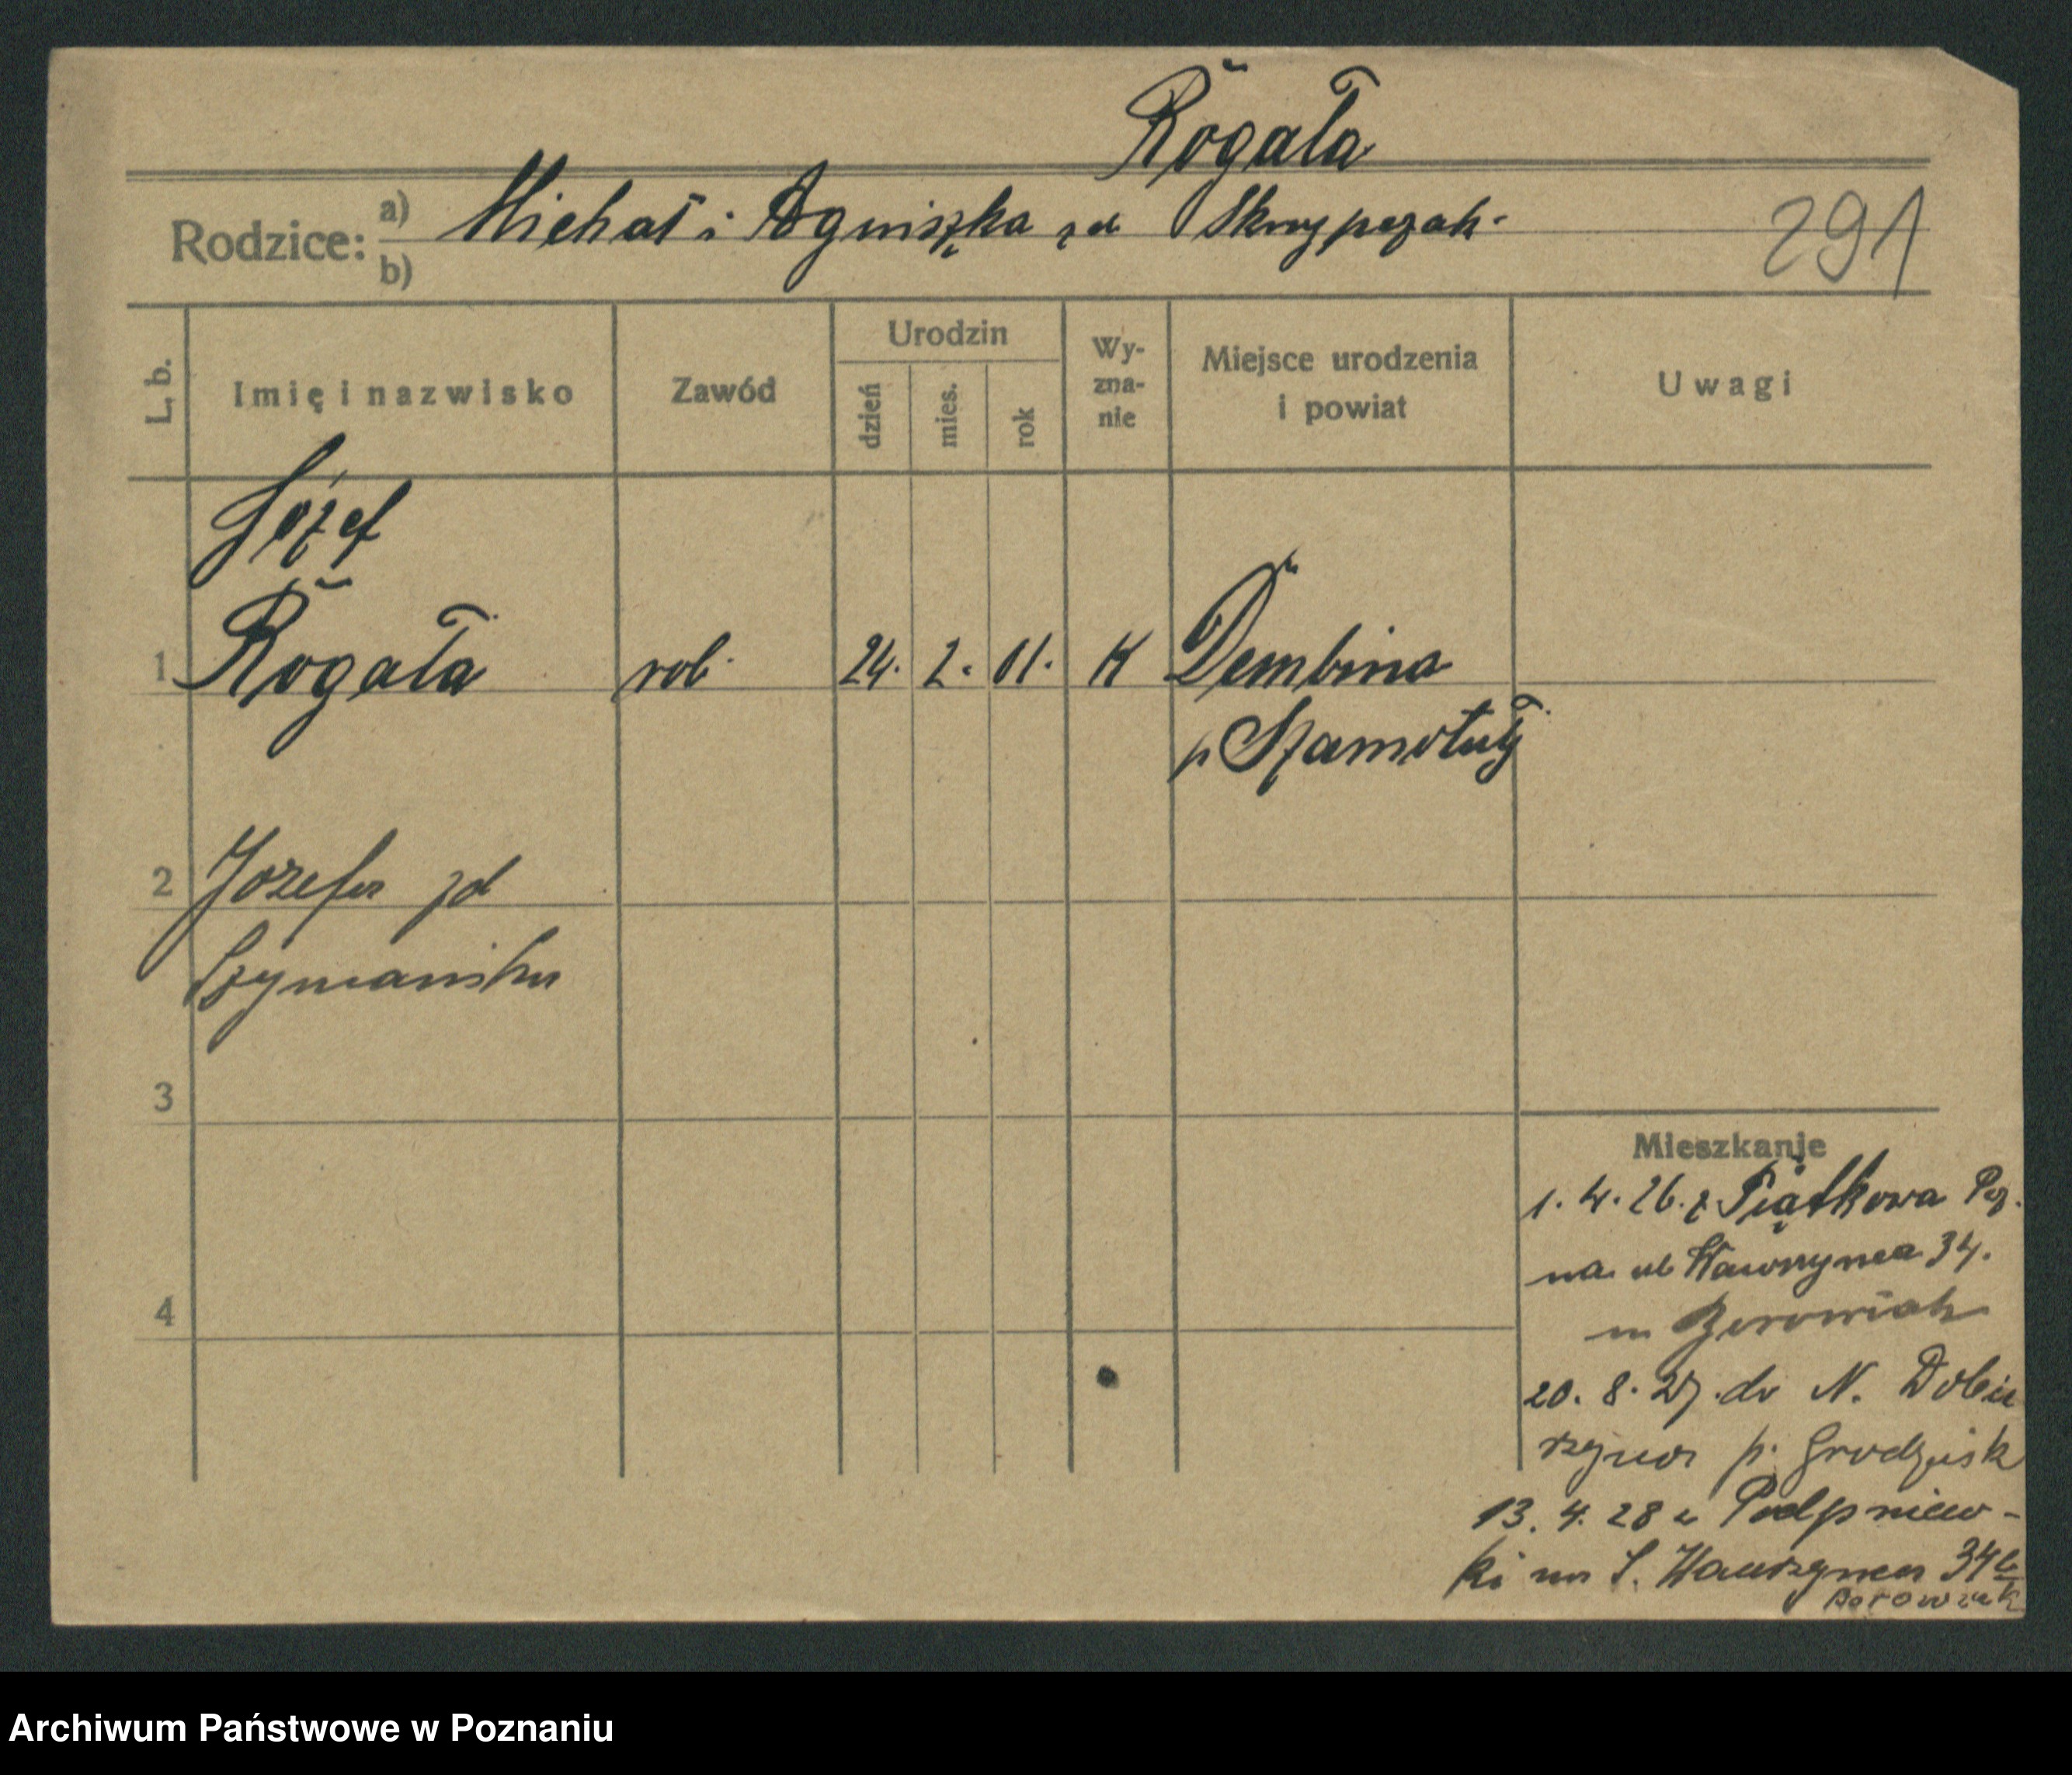 Rogała
Rodzice: a) Michał i Agniszka zd Skrzypczak
b)
291
L. b.
Imię i nazwisko
Zawód
Urodzin
dzień
mies.
rok
Wy-
zna-
nie
Miejsce urodzenia
i powiat
Uwagi
Józef
1 Rogała rob. 24. 2. 01. K Dembina
p Szamotuły
2 Józefa zd
Szymańska
3
4
Mieszkanie
1. 4. 26. z Piątkowa Poz.
na ul Wawrzynca 34.
m Borowiak
20. 8. 27. do N. Dobie
rzyna p. Grodzisk
13. 4. 28 z Podpniew-
ki na S. Wawrzynca 34
Borowiak
Archiwum Państwowe w Poznaniu